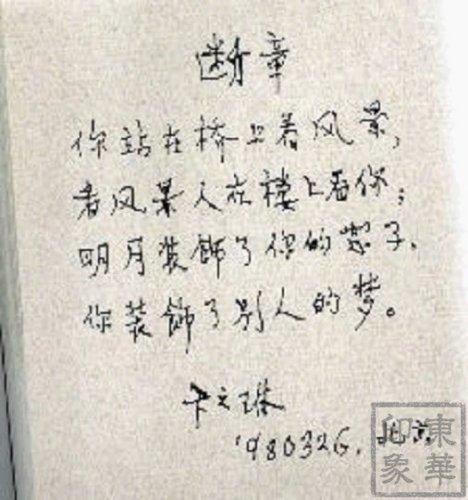 断章
你站在桥上看风景，
看风景人在楼上看你；
明月装饰了你的窗子，
你装饰了别人的梦。
卞之琳
1980326，北京
東華
印象